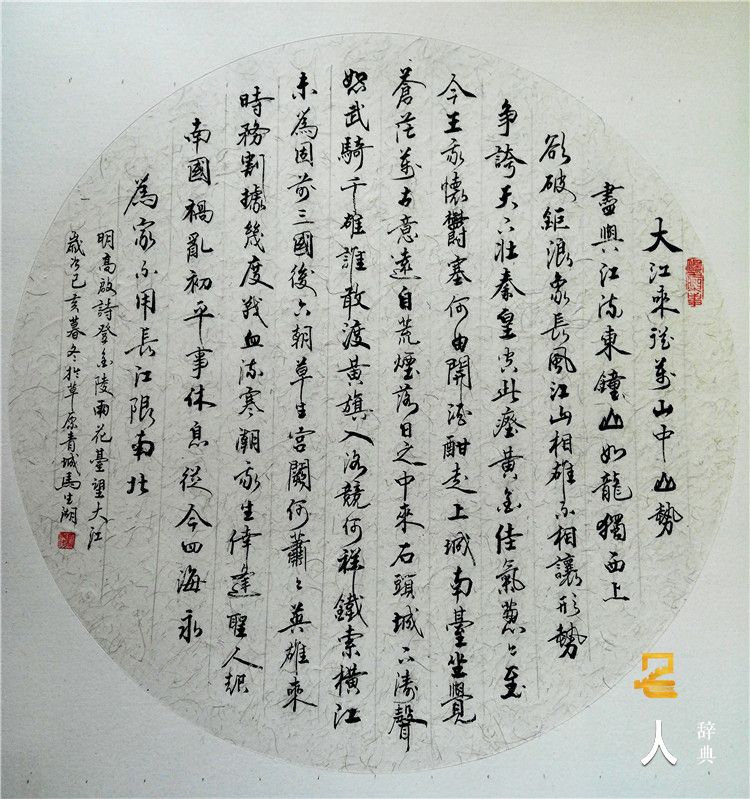 大江來從萬山中山勢
盡與江流東鐘山如龍獨西上
欲破鉅浪乘長風江山相雄不相讓形勢
爭誇天下壯秦皇空此瘞黃金佳氣蔥〻至
今王我懷鬱塞何由開酒酣走上城南臺坐覺
蒼茫萬古意遠自荒煙落日之中來石頭城下濤聲
怒武騎千雄誰敢渡黃旗入洛競何祥鐵索橫江
未為固前三國後六朝草生宮闕何蕭〻英雄乘
時務割據幾度戰血流寒潮我生倖逢聖人起
南國禍亂初平事休息從今四海永
為家不用長江限南北
明高啟詩登金陵雨花臺望大江
歲次己亥暮冬於草原青城馬生湖
名人
辞典